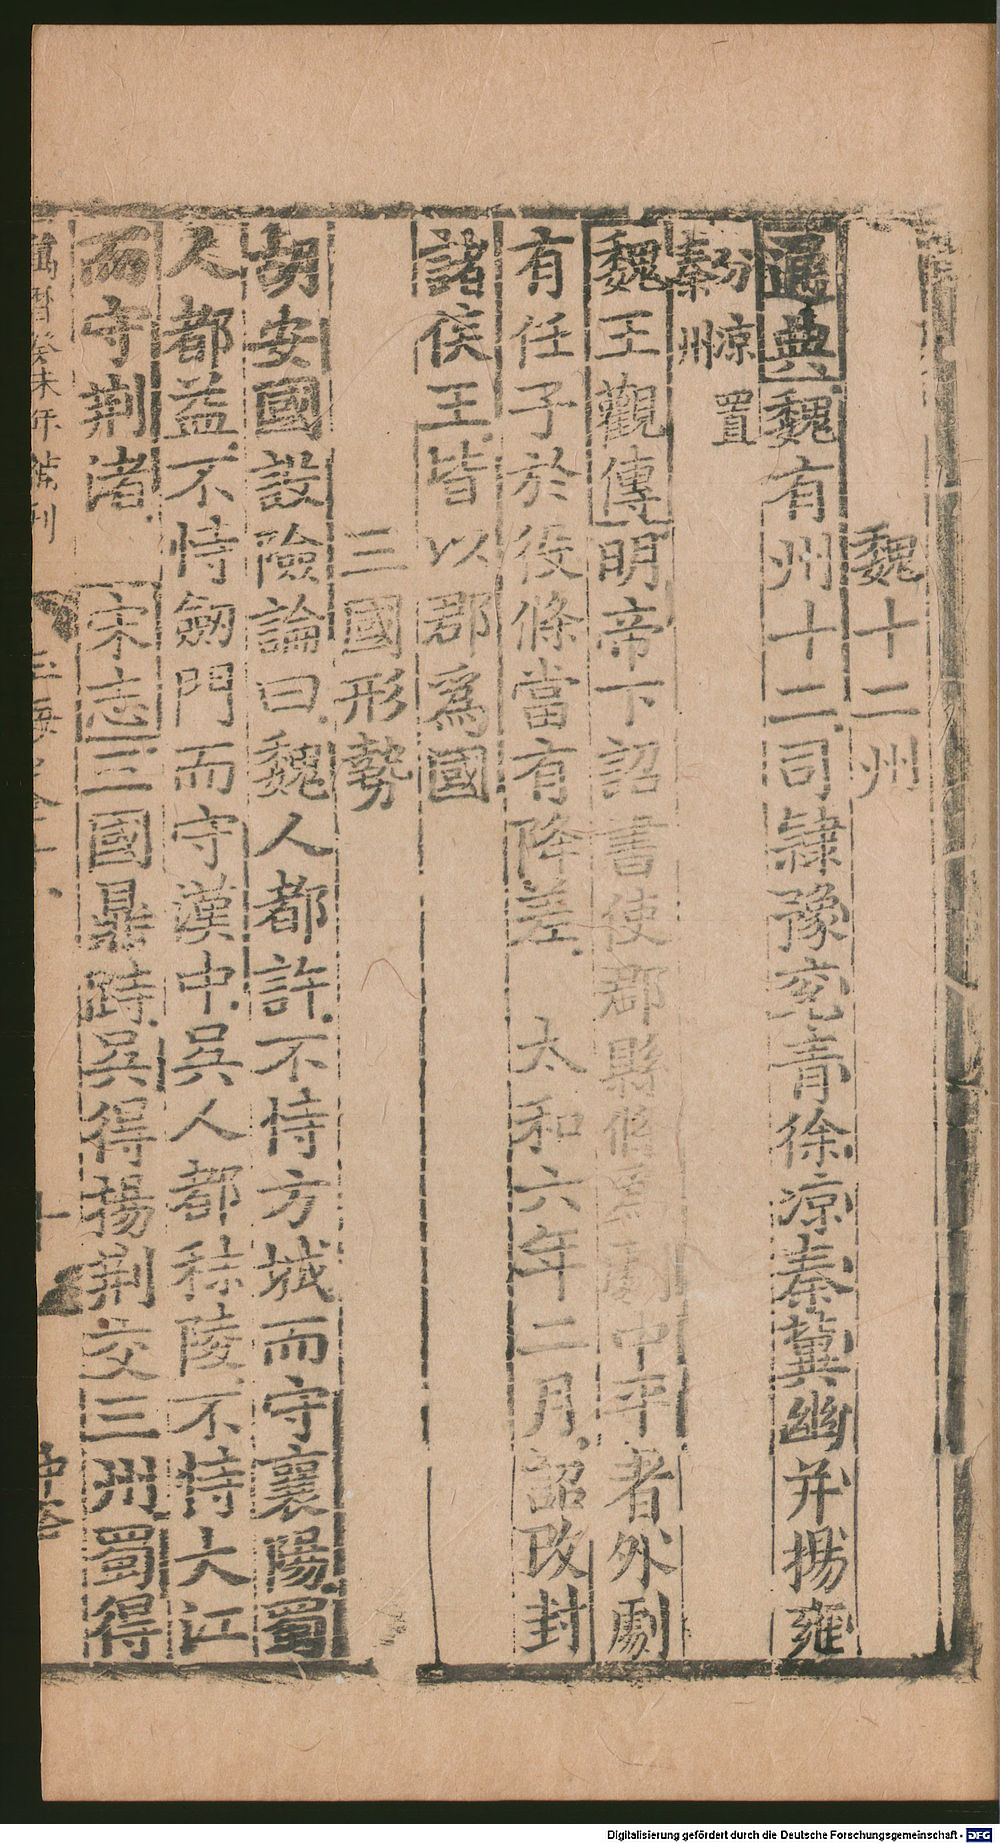 魏十二州
通典魏有州十二司隸豫兖青徐凉秦冀幽并揚雍
分凉置
秦州
魏王觀傳明帝下詔書使郡縣條爲劇中平者外劇
有任子於役條當有降差太和六年二月詔改封
諸侯王皆以郡爲國
三國形勢
胡安國設險論曰魏人都許不恃方城而守襄陽蜀
人都益不恃劒門而守漢中吳人都秣陵不恃大江
而守荆渚 宋志三國鼎跱吳得揚荆交三州蜀得
萬曆癸未年 刊
Digitalisierung gefördert durch die Deutsche Forschungsgemeinschaft - DFG